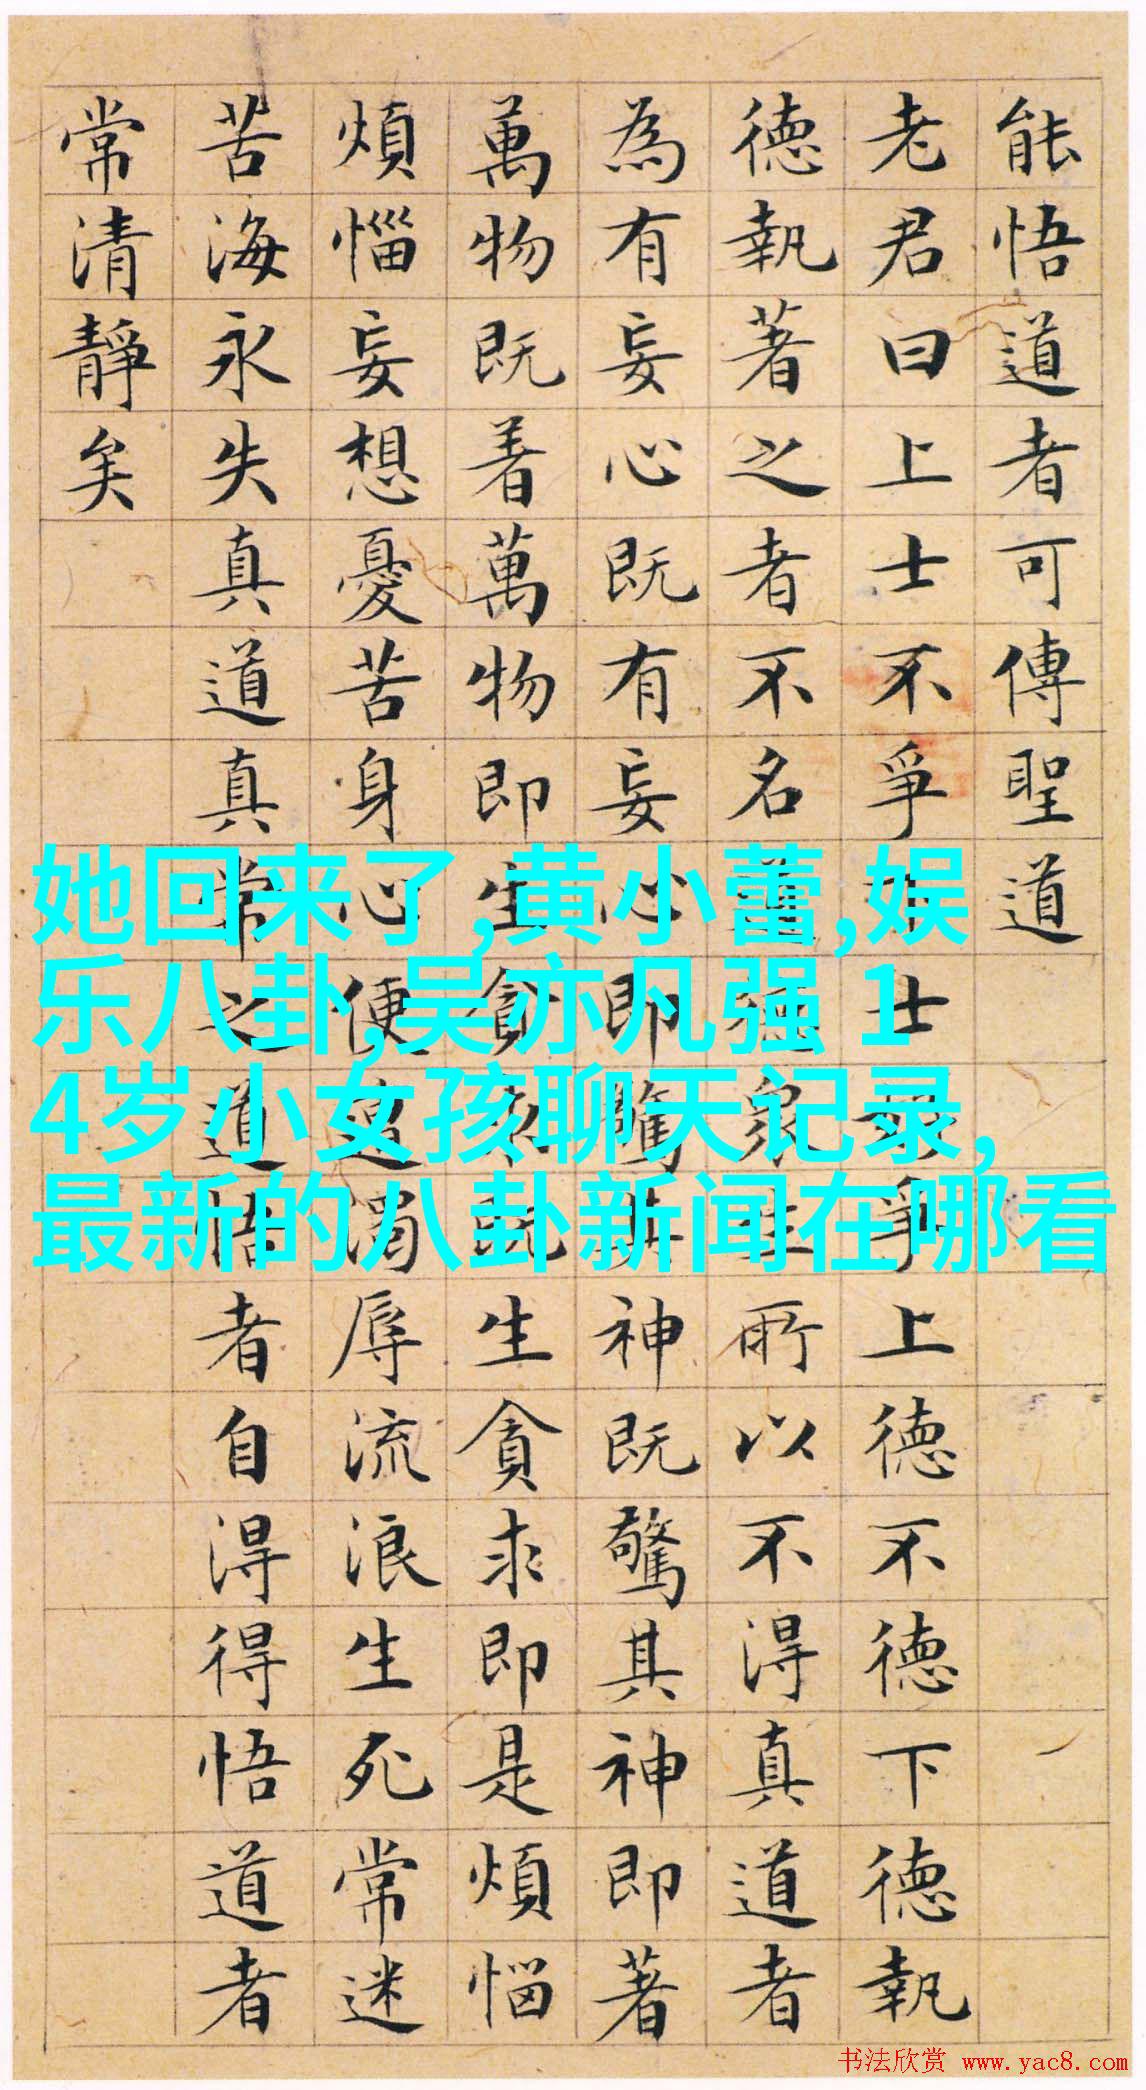 能悟道者可傳聖道
老君曰上士不爭下士好爭上德不德下德執
德執著之者不名道德眾生所以不得真道者
為有妄心既有妄心即驚其神既驚其神即著
萬物既着萬物即生貪求既生貪求即是煩惱
煩惱妄想憂苦身心便遭濁辱流浪生死常迷
苦海永失真道真常之道悟者自得得悟道者
常清靜矣
她回来了,黄小蕾,娱
乐八卦,吴亦凡强 1
4岁小女孩聊天记录,
最新的八卦新闻在哪看
书法欣赏 www.yac8.com